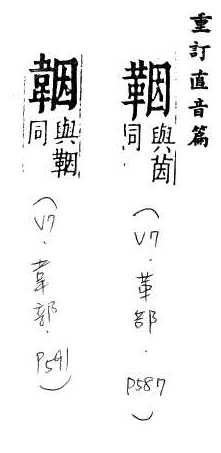 重訂直音篇
鞇 與茵同
(V7.革部.P587)
䡛 與鞇同
(V7.韋部.P591)